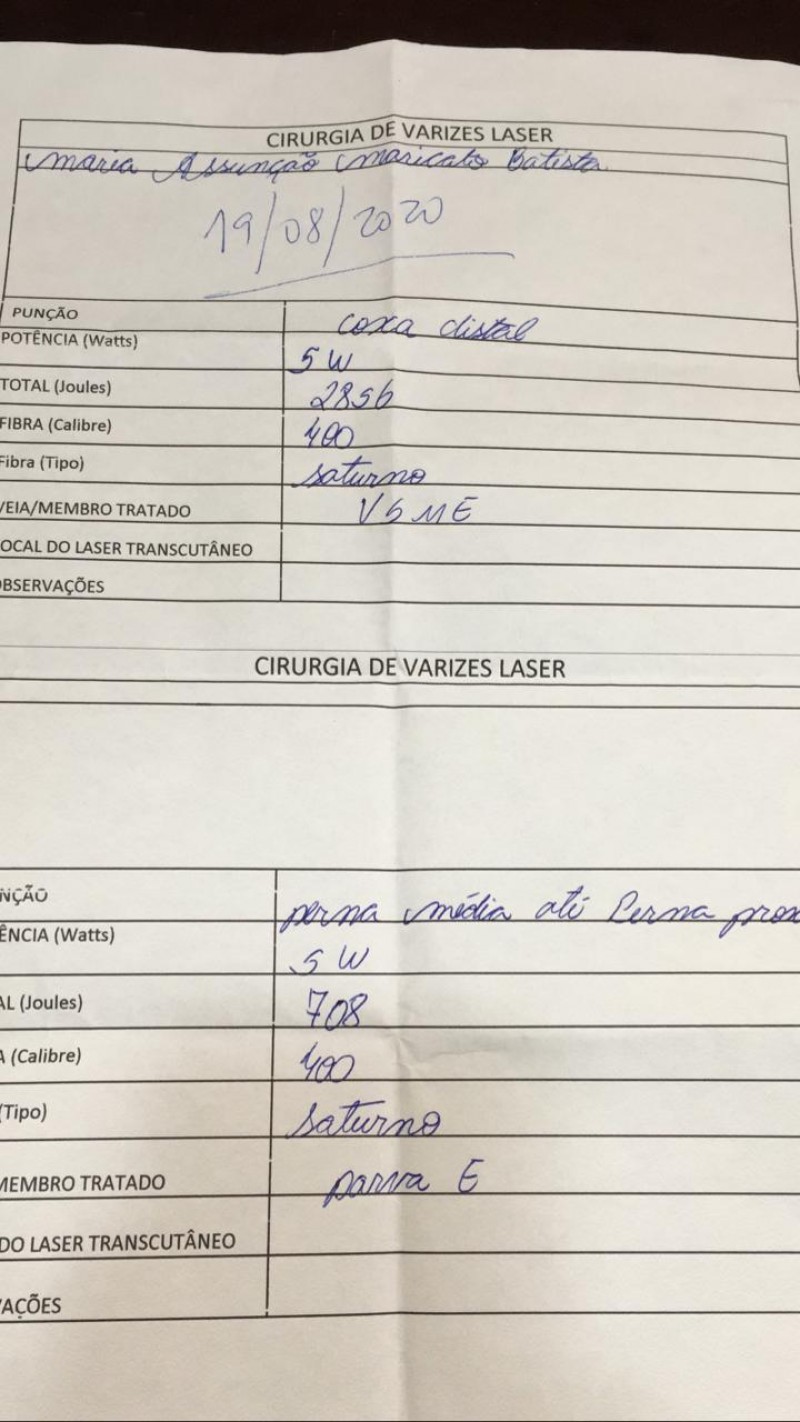 CIRURGIA DE VARIZES LASER
Maria Assunção Maricato Batista
19/08/2020
PUNÇÃO coxa distal
POTÊNCIA (Watts) 5 W
TOTAL (Joules) 2856
FIBRA (Calibre) 400
Fibra (Tipo) saturno
VEIA/MEMBRO TRATADO VSME
OCAL DO LASER TRANSCUTÂNEO
OBSERVAÇÕES
CIRURGIA DE VARIZES LASER
NÇÃO perna média até Perna prox
ÊNCIA (Watts) 5 W
AL (Joules) 708
A (Calibre) 400
(Tipo) saturno
MEMBRO TRATADO parva E
DO LASER TRANSCUTÂNEO
VAÇÕES